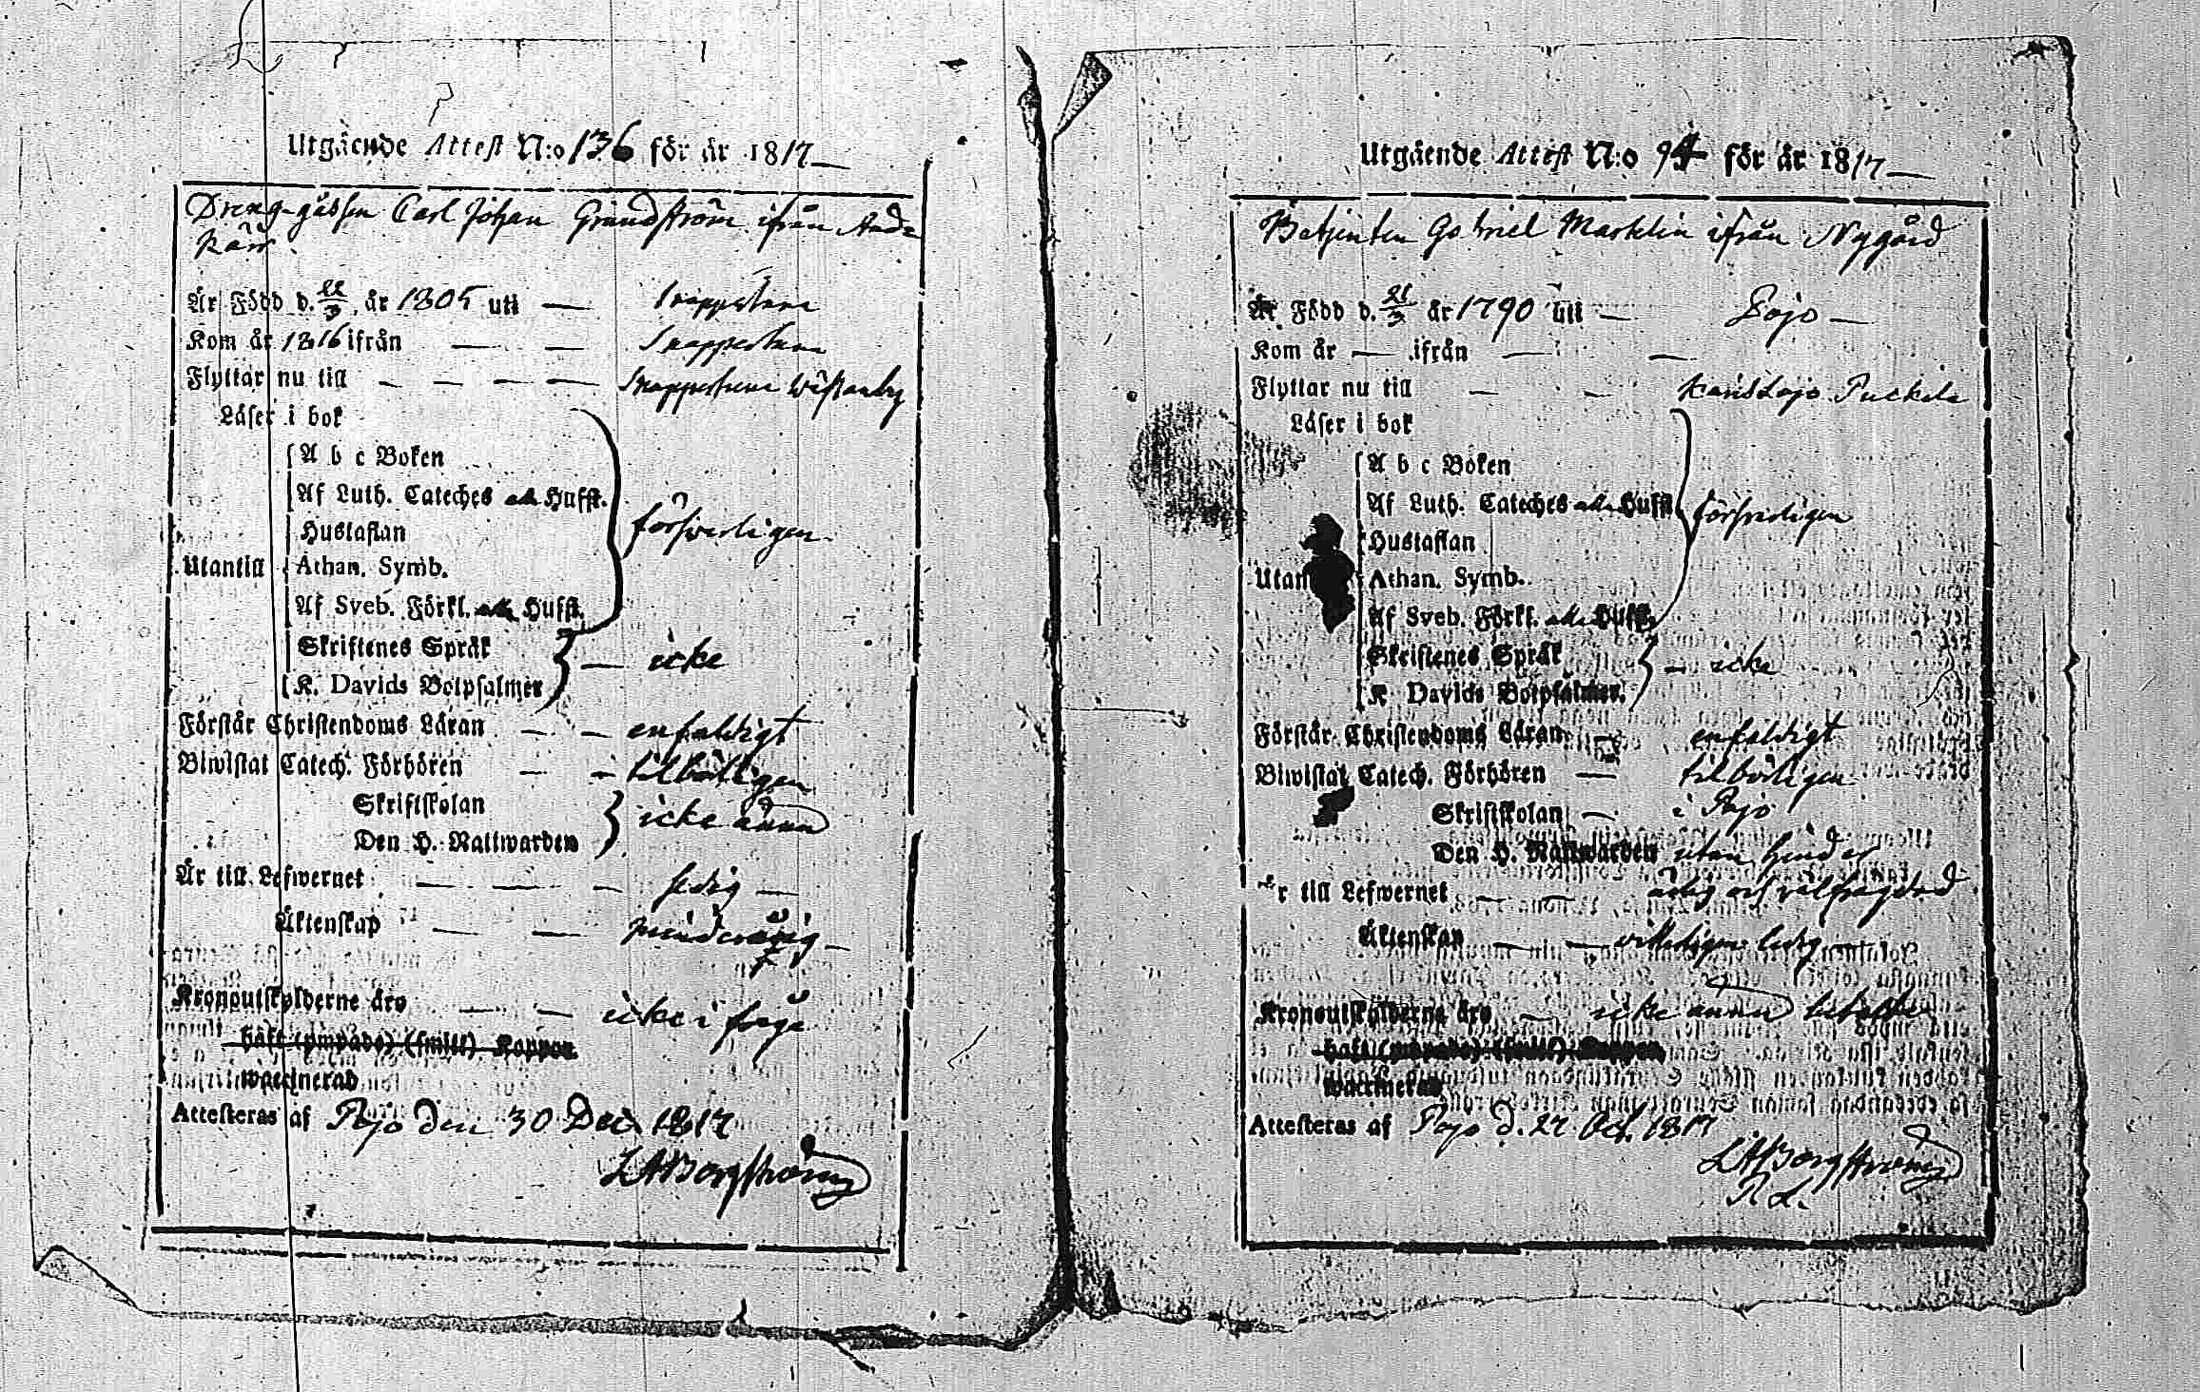 Utgående Attest N:o 136 för år 1817
Dreng-gåssen Carl Johan Grundström ifrån Anda
kärr.
Är Född d. 22/3 år 1805 uti — Snappertuna
Kom år 1816 ifrån — — Snappertuna
Flyttar nu till — — — — Snappertuna Wästanby
Läser i bok
A b c Boken
Af Luth. Cateches alla Hufst.
Hustaflan
försvarligen
Utantill
Athan. Symb.
Af Sveb. Förkl. alla Hufst.
Skriftenes Språk
— icke
K. Davids Botpsalmer
Förstår Christendoms Läran — — enfaldigt
Biwistat Catech. Förhören — — tilbörligen
Skriftskolan
icke ännu
Den H. Nattwarden
Är till Lefwernet — — — sedig —
Äktenskap — — minderårig —
Kronoutskylderne äro — — icke i fråga
haft (ympade) (smitt) Koppor
waccinerad
Attesteras af Pojo den 30 Dec. 1817
LABorgström
Utgående Attest N:o 94 för år 1817
Betjenten Gabriel Marklin ifrån Nygård
Är Född d. 21/3 år 1790 uti — Pojo —
Kom år — ifrån — —
Flyttar nu till — — Karislojo Puckila
Läser i bok
A b c Boken
Af Luth. Cateches alla Hufst.
försvarligen
Hustaflan
Utantill
Athan. Symb.
Af Sveb. Förkl. alla Hufst.
Skriftenes Språk
— icke
K. Davids Botpsalmer.
Förstår Christendoms Läran enfaldigt
Biwistat Catech. Förhören — tilbörligen
Skriftskolan — i Pojo
Den H. Nattwarden utan hinder
Är till Lefwernet — — ärlig och välfrägdad
Äktenskap — — ledig
Kronoutskylderne äro — icke ännu betalte
haft (ympade) (smitt) Koppor
waccinerad
Attesteras af Pojo d. 27 Oct. 1817
LABorgström